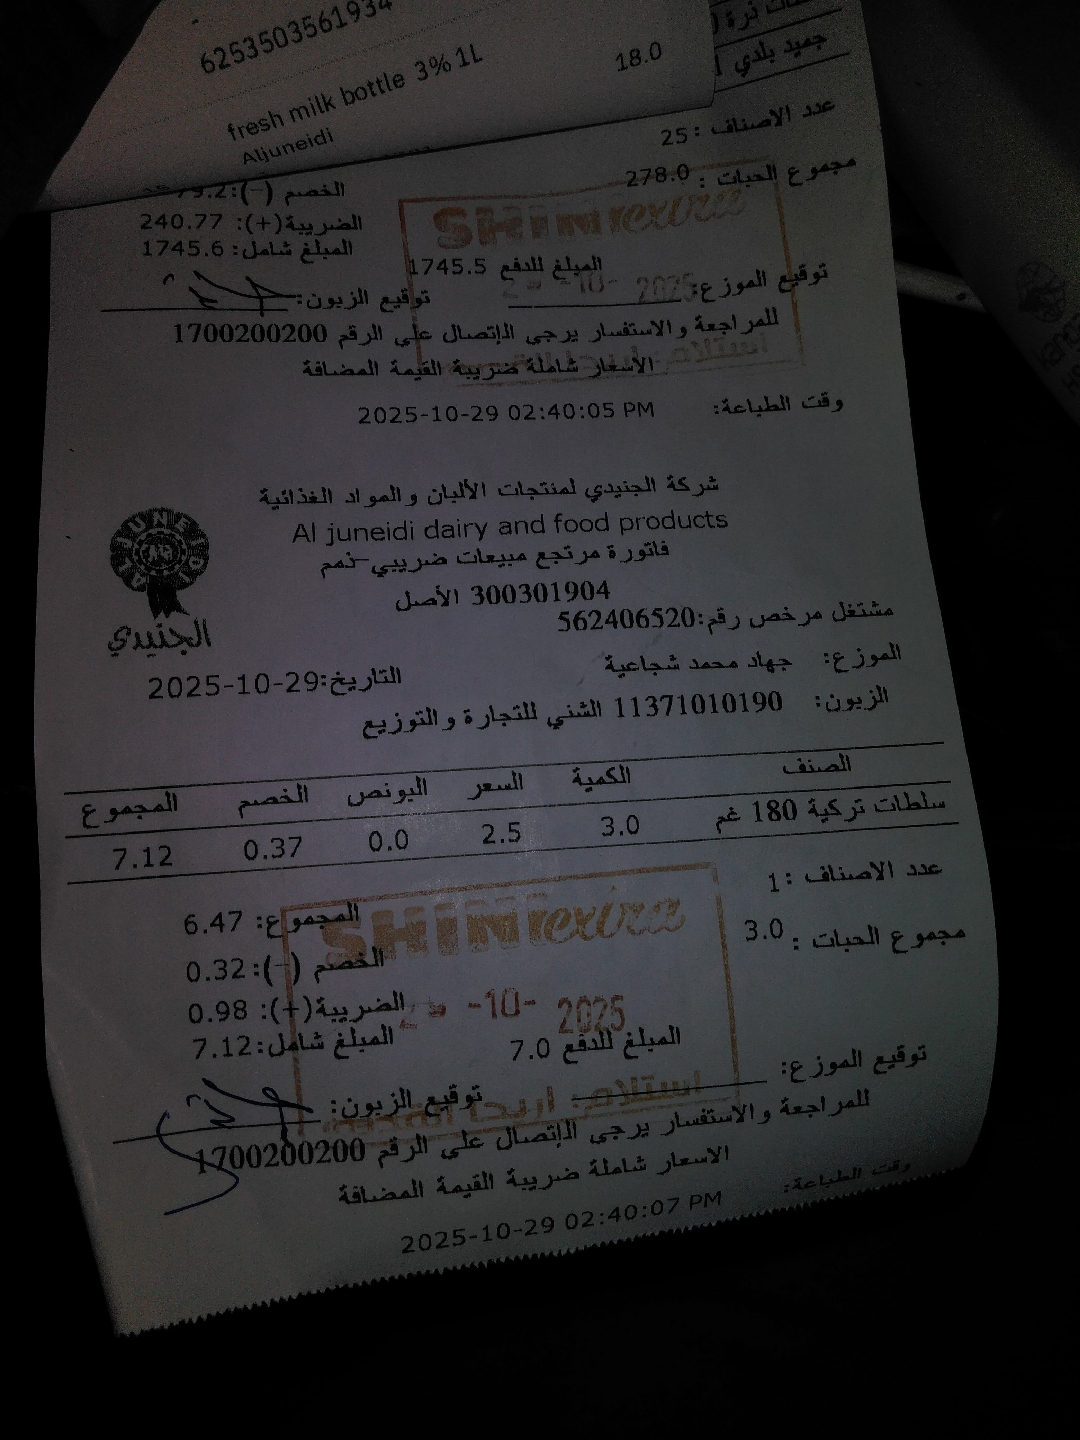 6253503561934
fresh milk bottle 3% 1L 18.0
Aljuneidi
جميد بلدي
عدد الاصناف : 25
مجموع الحبات : 278.0
الخصم (-): 79.2
الضريبة(+): 240.77
المبلغ شامل: 1745.6
المبلغ للدفع 1745.5
SHINI extra
-10- 2025
توقيع الموزع:
توقيع الزبون:
للمراجعة والاستفسار يرجى الإتصال على الرقم 1700200200
الأسعار شاملة ضريبة القيمة المضافة
وقت الطباعة: 2025-10-29 02:40:05 PM
شركة الجنيدي لمنتجات الألبان والمواد الغذائية
Al juneidi dairy and food products
فاتورة مرتجع مبيعات ضريبي-ذمم
300301904 الأصل
AL JUNEIDI
الجنيدي
مشتغل مرخص رقم:562406520
الموزع: جهاد محمد شجاعية
التاريخ:2025-10-29
الزبون: 11371010190 الشني للتجارة والتوزيع
الصنف الكمية السعر البونص الخصم المجموع
سلطات تركية 180 غم 3.0 2.5 0.0 0.37 7.12
عدد الاصناف : 1
مجموع الحبات : 3.0
المجموع: 6.47
الخصم (-): 0.32
الضريبة(+): 0.98
المبلغ شامل: 7.12
المبلغ للدفع 7.0
SHINI extra
-10- 2025
استلام: اريحا
توقيع الموزع:
توقيع الزبون:
للمراجعة والاستفسار يرجى الإتصال على الرقم 1700200200
الاسعار شاملة ضريبة القيمة المضافة
وقت الطباعة: 2025-10-29 02:40:07 PM